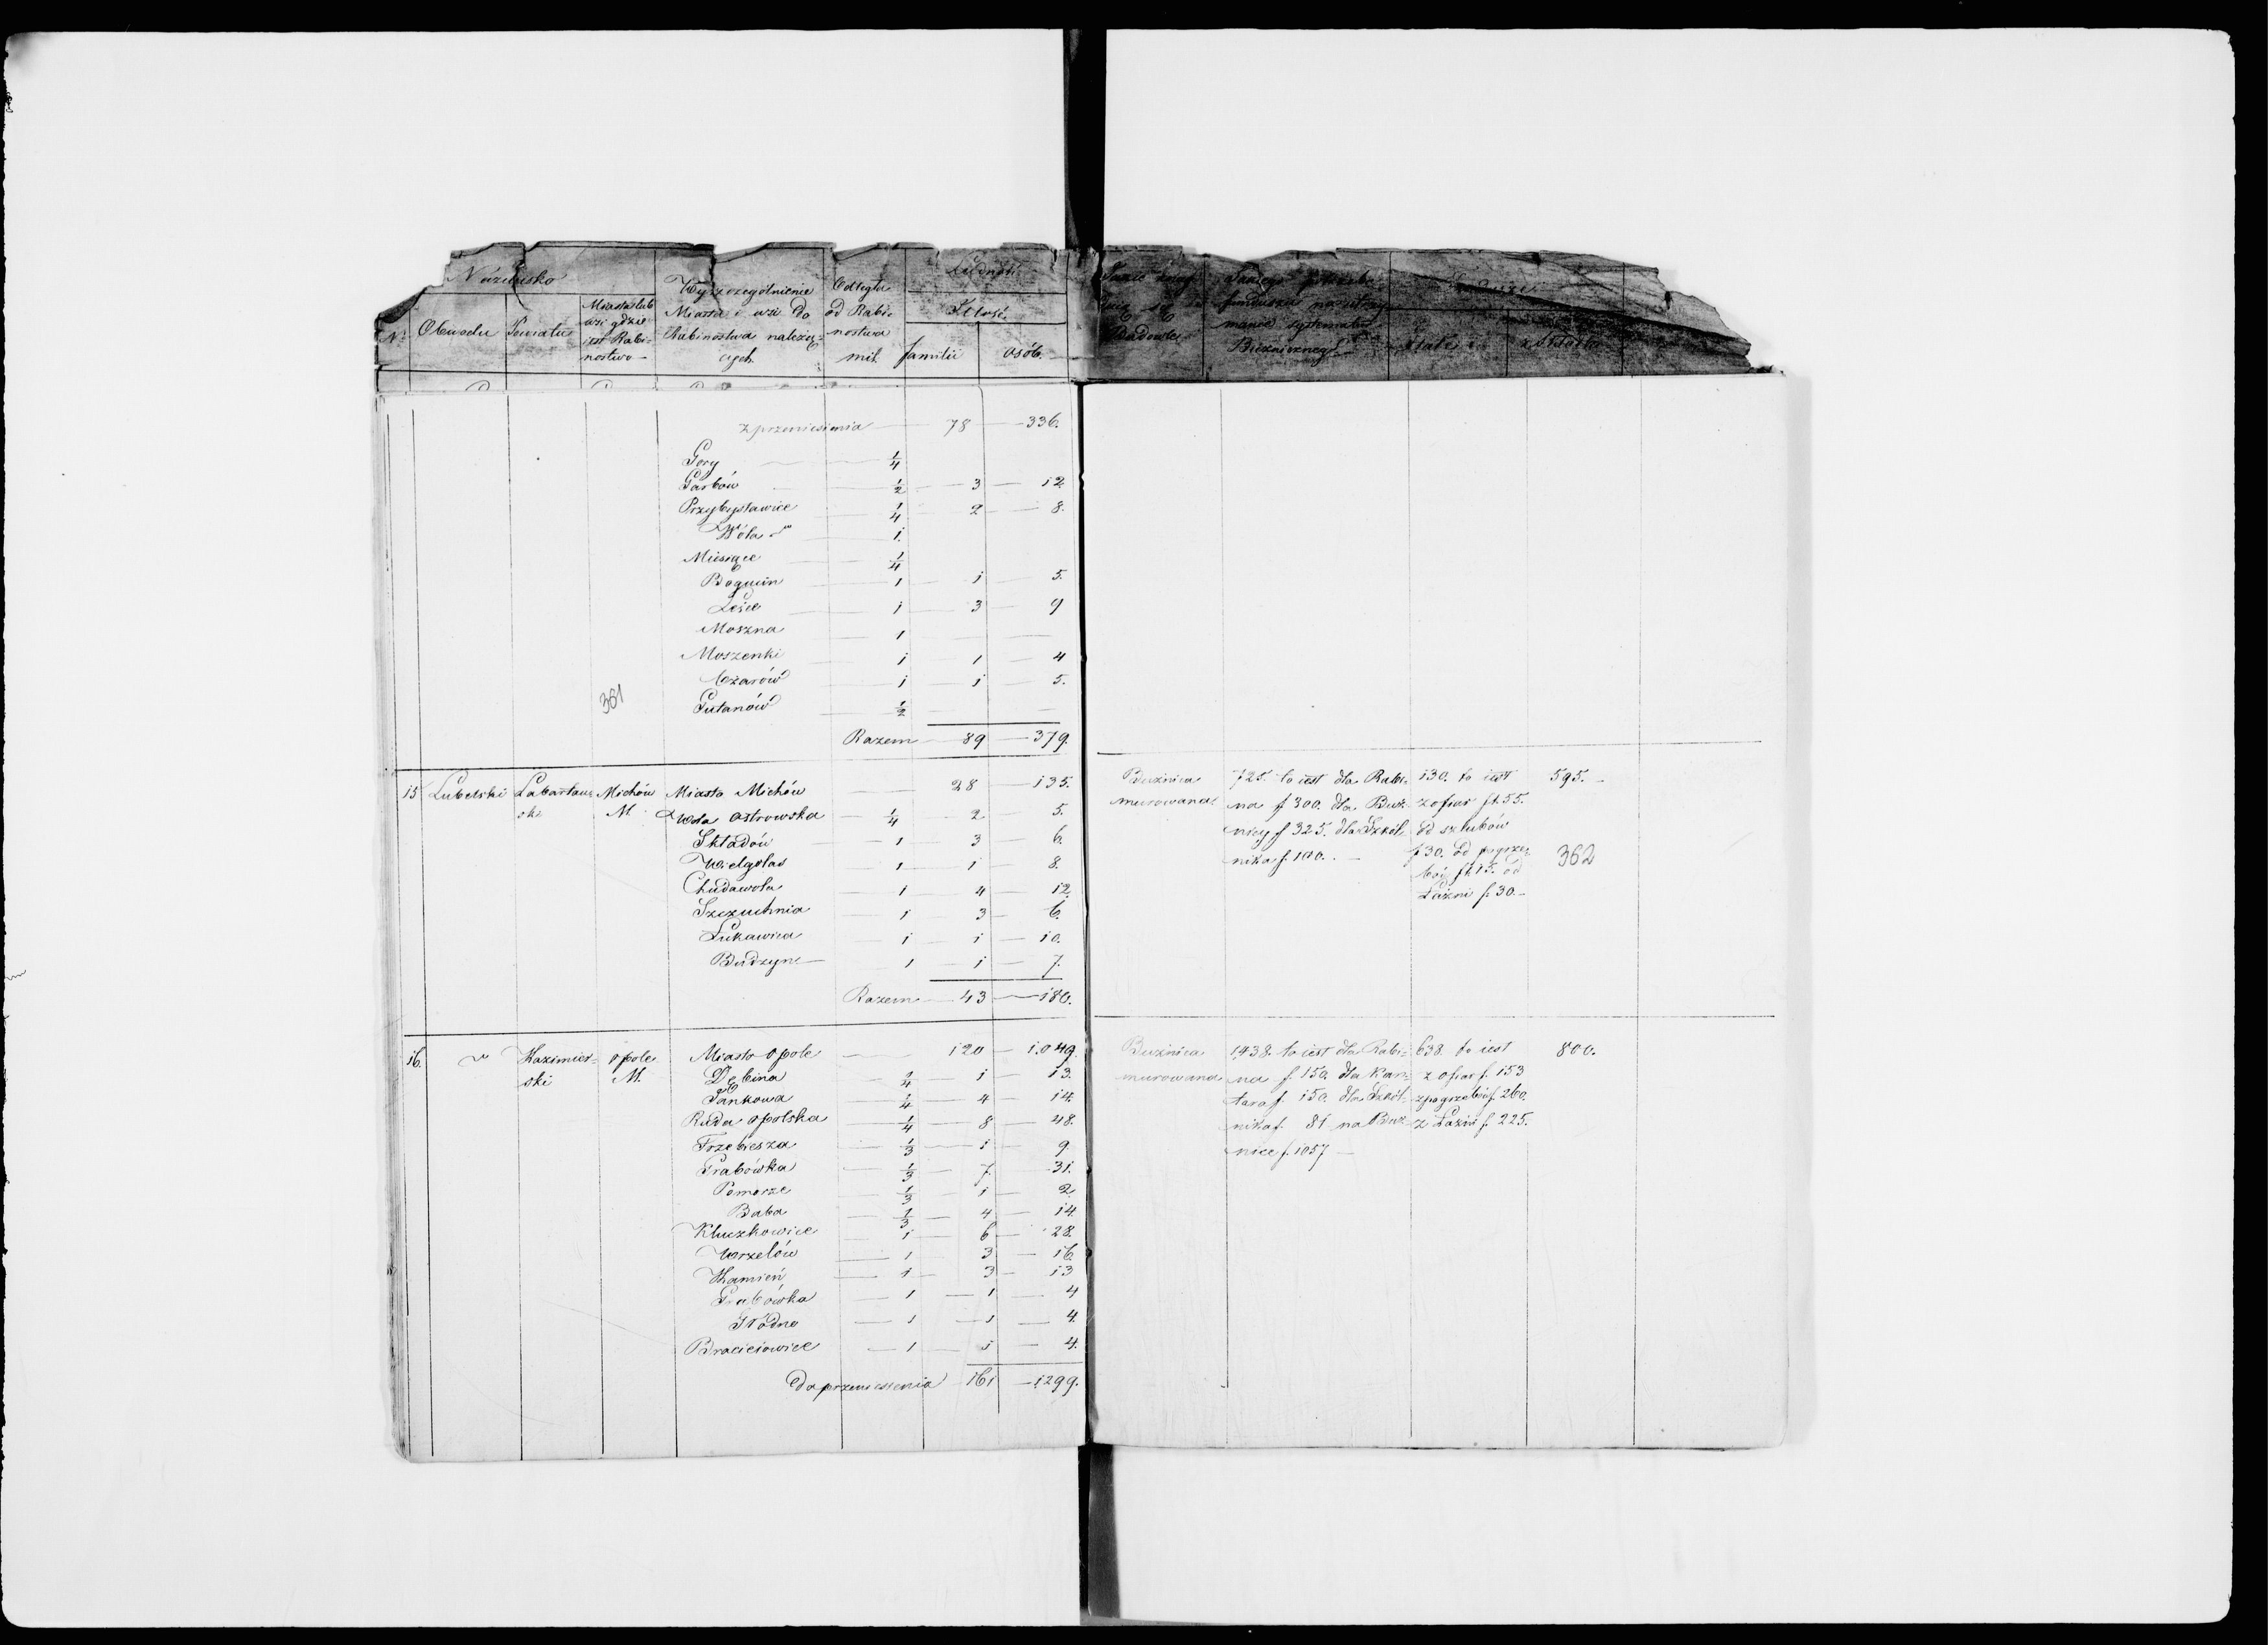 Nazwisko
Nr Obwodu Powiatu Miasta lub wsi gdzie iest Rabinostwo
Wyszczególnienie Miasta i wsi do Rabinostwa należących
Odległa od Rabinostwa mil.
Ludność
Ilość
familii osób.
funduszu na utrzymanie
Bużniczneg
z przeniesienia 78 336.
Gory 1/4
Garbów 1/2 3 12
Przybysławice 1/4 2 8.
Wola 1.
Miesiące 1/4
Bogucin 1 1 5.
Leśce 1 3 9
Moszna 1
Moszenki 1 1 4
Ożarów 1 1 5.
Gutanów 1/2
361
Razem 89 379.
15 Lubelski Lubartow= Michów Miasto Michów 28 135.
ski M. Wola Ostrowska 1/4 2 5.
Składów 1 3 6.
Wielgolas 1 1 8.
Chudawola 1 4 12.
Szczuchnia 1 3 6.
Lukawica 1 1 10.
Budzyne 1 1 7.
Razem 43 180.
16. " Kazimier= Opole Miasto Opole 120 1.049.
ski M. Dębina 2/4 1 13.
Jankowa 1/4 4 14.
Ruda Opolska 1/4 8 48.
Trzebiesza 1/3 1 9.
Grabówka 1/3 7. 31.
Pomorze 1/3 1 2
Baba 1/3 4 14.
Kluczkowice 1 6 28.
Wrzelów 1 3 16.
Kamień 1 3 13
Grabówka 1 1 4
Grodne 1 1 4.
Braciejowice 1 1 4.
Do przeniesienia 161 1299.
Bużnica 725. to iest dla Rabi= 130. to iest 595.
murowana na f 300. dla Buż= z ofiar f. 55.
nicy f 325. dla Szkól= od szlubów
nika f. 100. f 30. od pogrze= 362
bów f 15. od
Łaźni f. 30.
Bużnica 1438. to iest dla Rabi= 638. to iest 800.
murowana na f. 150. dla Kan= z ofiar f. 153
tora f. 150. dla Szkól= z pogrzebów f. 260.
nika f. 81 na Buż= z Łaźni f. 225.
nice f. 1057